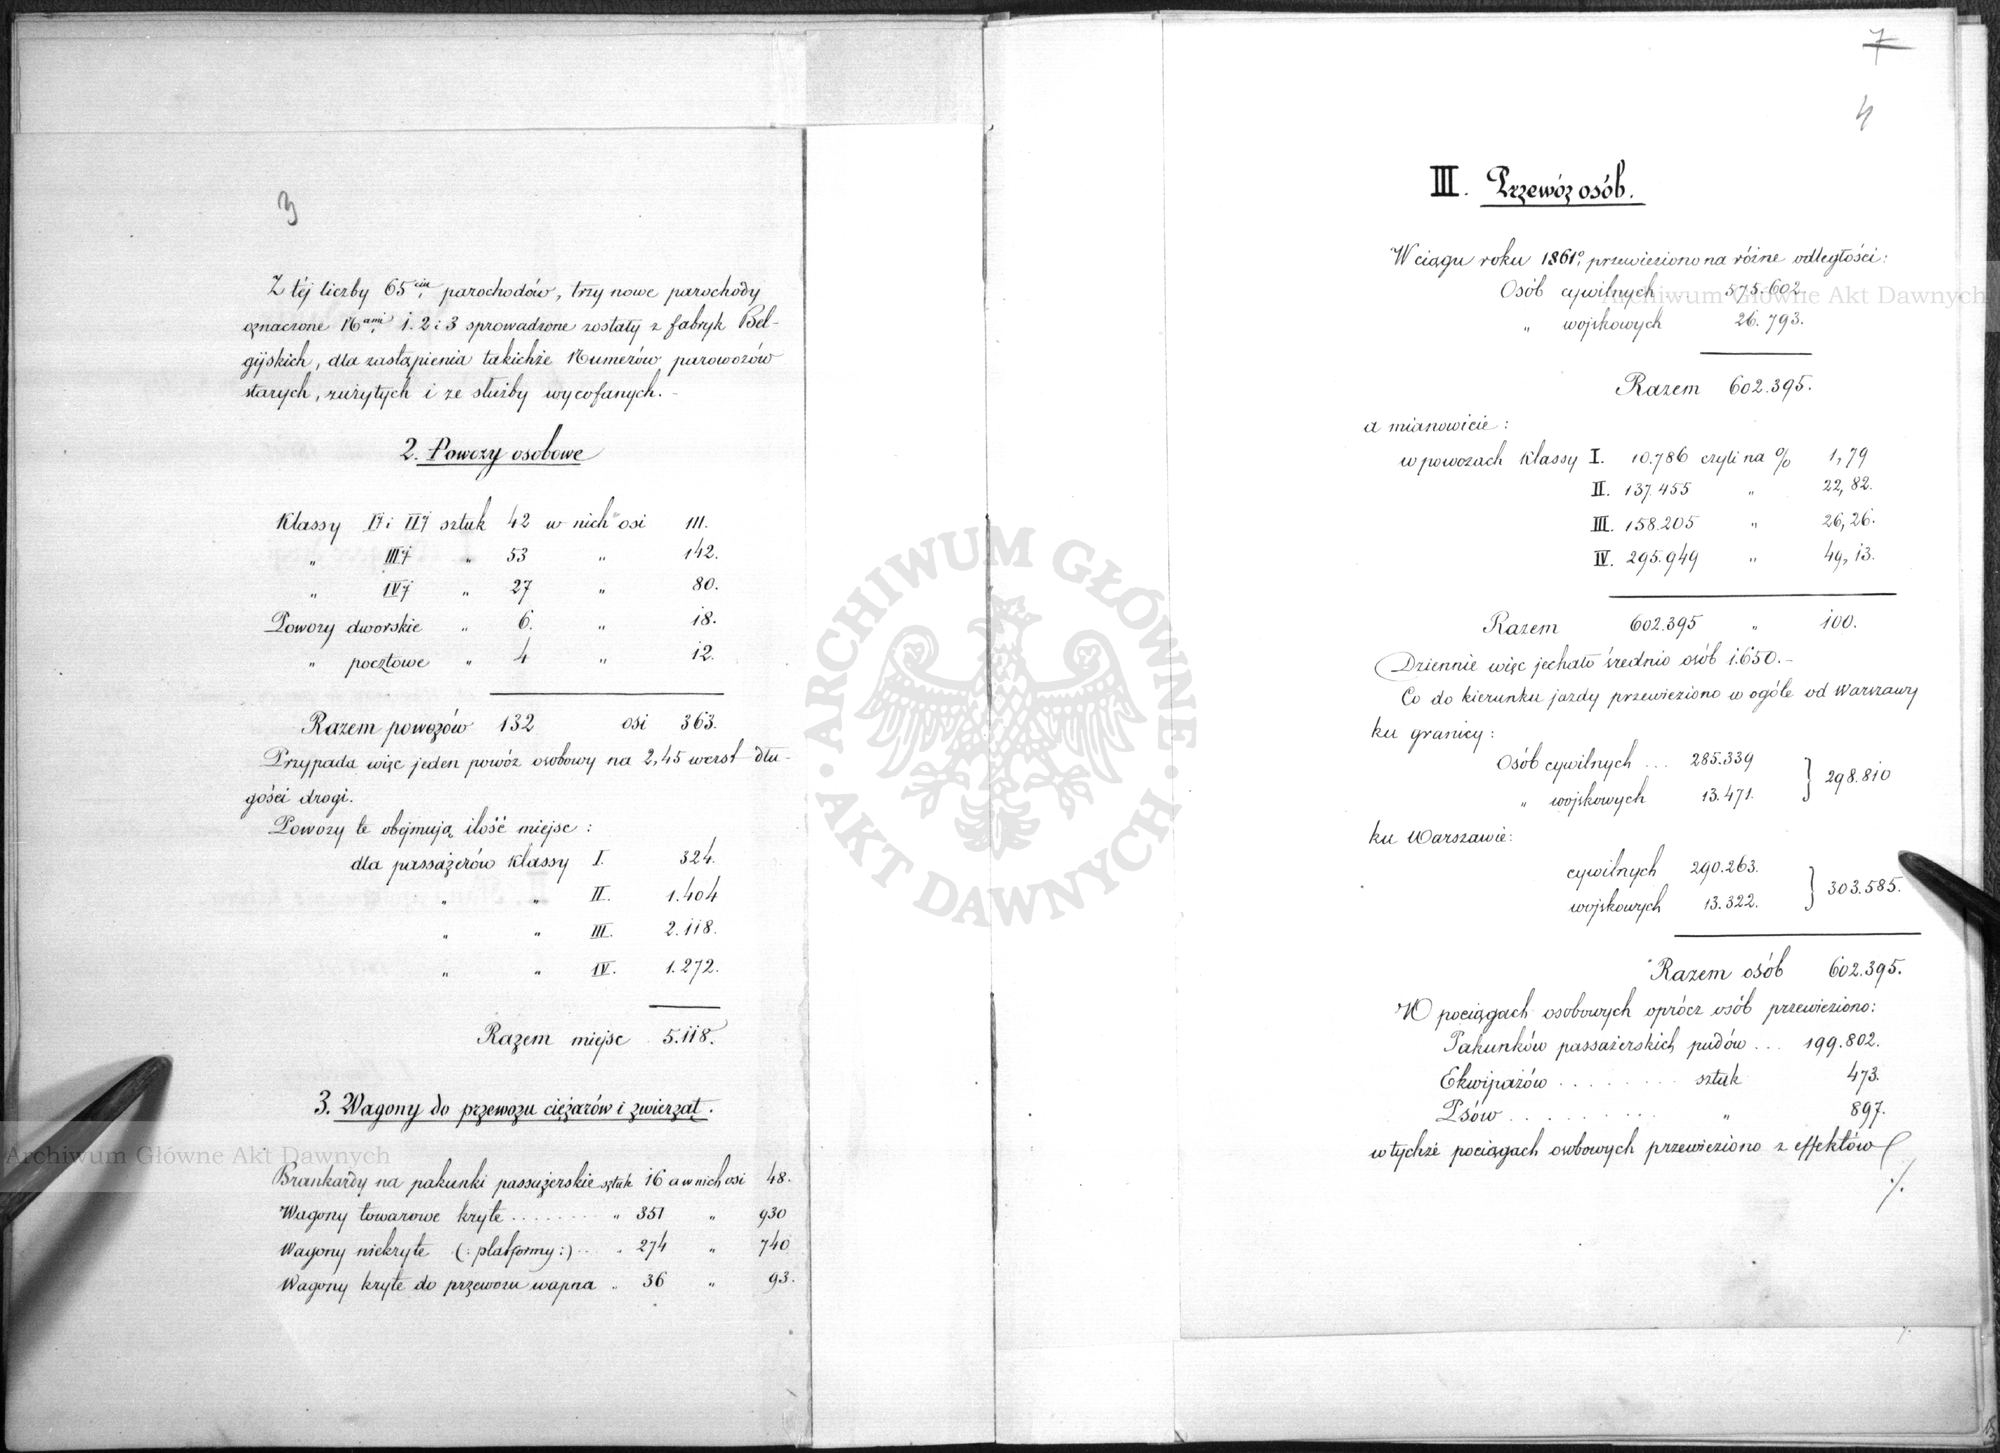 3
Z téj liczby 65ciu parochodów, trzy nowe parochody
oznaczone Nami 1. 2 i 3 sprowadzone zostały z fabryk Bel-
gijskich, dla zastąpienia takichże Numerów parowozów
starych, zużytych i ze służby wycofanych. -
2. Powozy osobowe
Klassy Iéj i IIéj sztuk 42 w nich osi 111.
" IIIéj " 53 " 142.
" IVéj " 27 " 80.
Powozy dworskie " 6. " 18.
" pocztowe " 4 " 12.
Razem powozów 132 osi 363.
Przypada więc jeden powóz osobowy na 2,45 werst dłu-
gości drogi.
Powozy te obejmują ilość miejsc :
dla passażerów klassy I. 324.
" " II. 1.404
" " III. 2.118.
" " IV. 1.272.
Razem miejsc 5.118.
3. Wagony do przewozu ciężarów i zwierząt.
Brankardy na pakunki passażerskie sztuk 16 a w nich osi 48.
Wagony towarowe kryte . . . . . . . . " 351 " 930
Wagony niekryte (: platformy :) . . . " 274 " 740
Wagony kryte do przewozu wapna " 36 " 93.
7
4
III. Przewóz osób.
W ciągu roku 1861o. przewieziono na różne odległości :
Osób cywilnych . . . . . 575.602
" wojskowych 26.793.
Razem 602.395.
a mianowicie :
w powozach klassy I. 10.786 czyli na % 1,79
II. 137.455 " 22,82.
III. 158.205 " 26,26.
IV. 295.949 " 49,13.
Razem 602.395 " 100.
Dziennie więc jechało średnio osób 1.650. -
Co do kierunku jazdy przewieziono w ogóle od Warszawy
ku granicy :
Osób cywilnych . . . 285.339
" wojskowych 13.471. } 298.810
ku Warszawie :
cywilnych 290.263.
wojskowych 13.322. } 303.585.
Razem osób 602.395.
W pociągach osobowych oprócz osób przewieziono :
Pakunków passażerskich pudów . . . 199.802.
Ekwipażów . . . . . . . . sztuk 473.
Psów . . . . . . . . . " 897.
w tychże pociągach osobowych przewieziono z effektów
./.
ARCHIWUM GŁÓWNE · AKT DAWNYCH ·
Archiwum Główne Akt Dawnych
Archiwum Główne Akt Dawnych